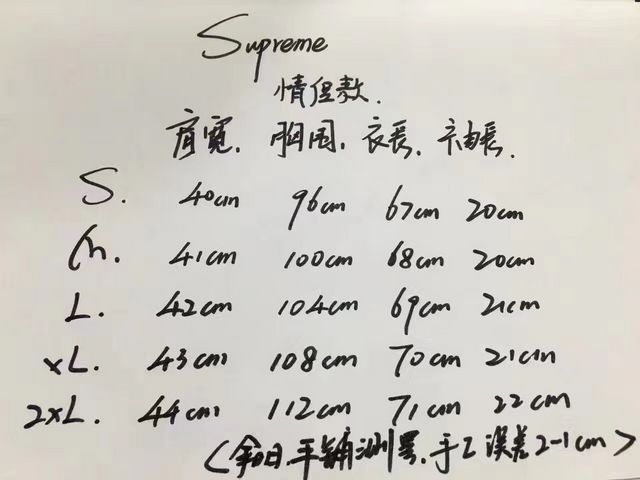 Supreme
情侣款.
肩寬. 胸围. 衣長. 袖長.
S. 40cm 96cm 67cm 20cm
m. 41cm 100cm 68cm 20cm
L. 42cm 104cm 69cm 21cm
XL. 43cm 108cm 70cm 21cm
2XL. 44cm 112cm 71cm 22cm
平铺测量.手工误差2-1cm>